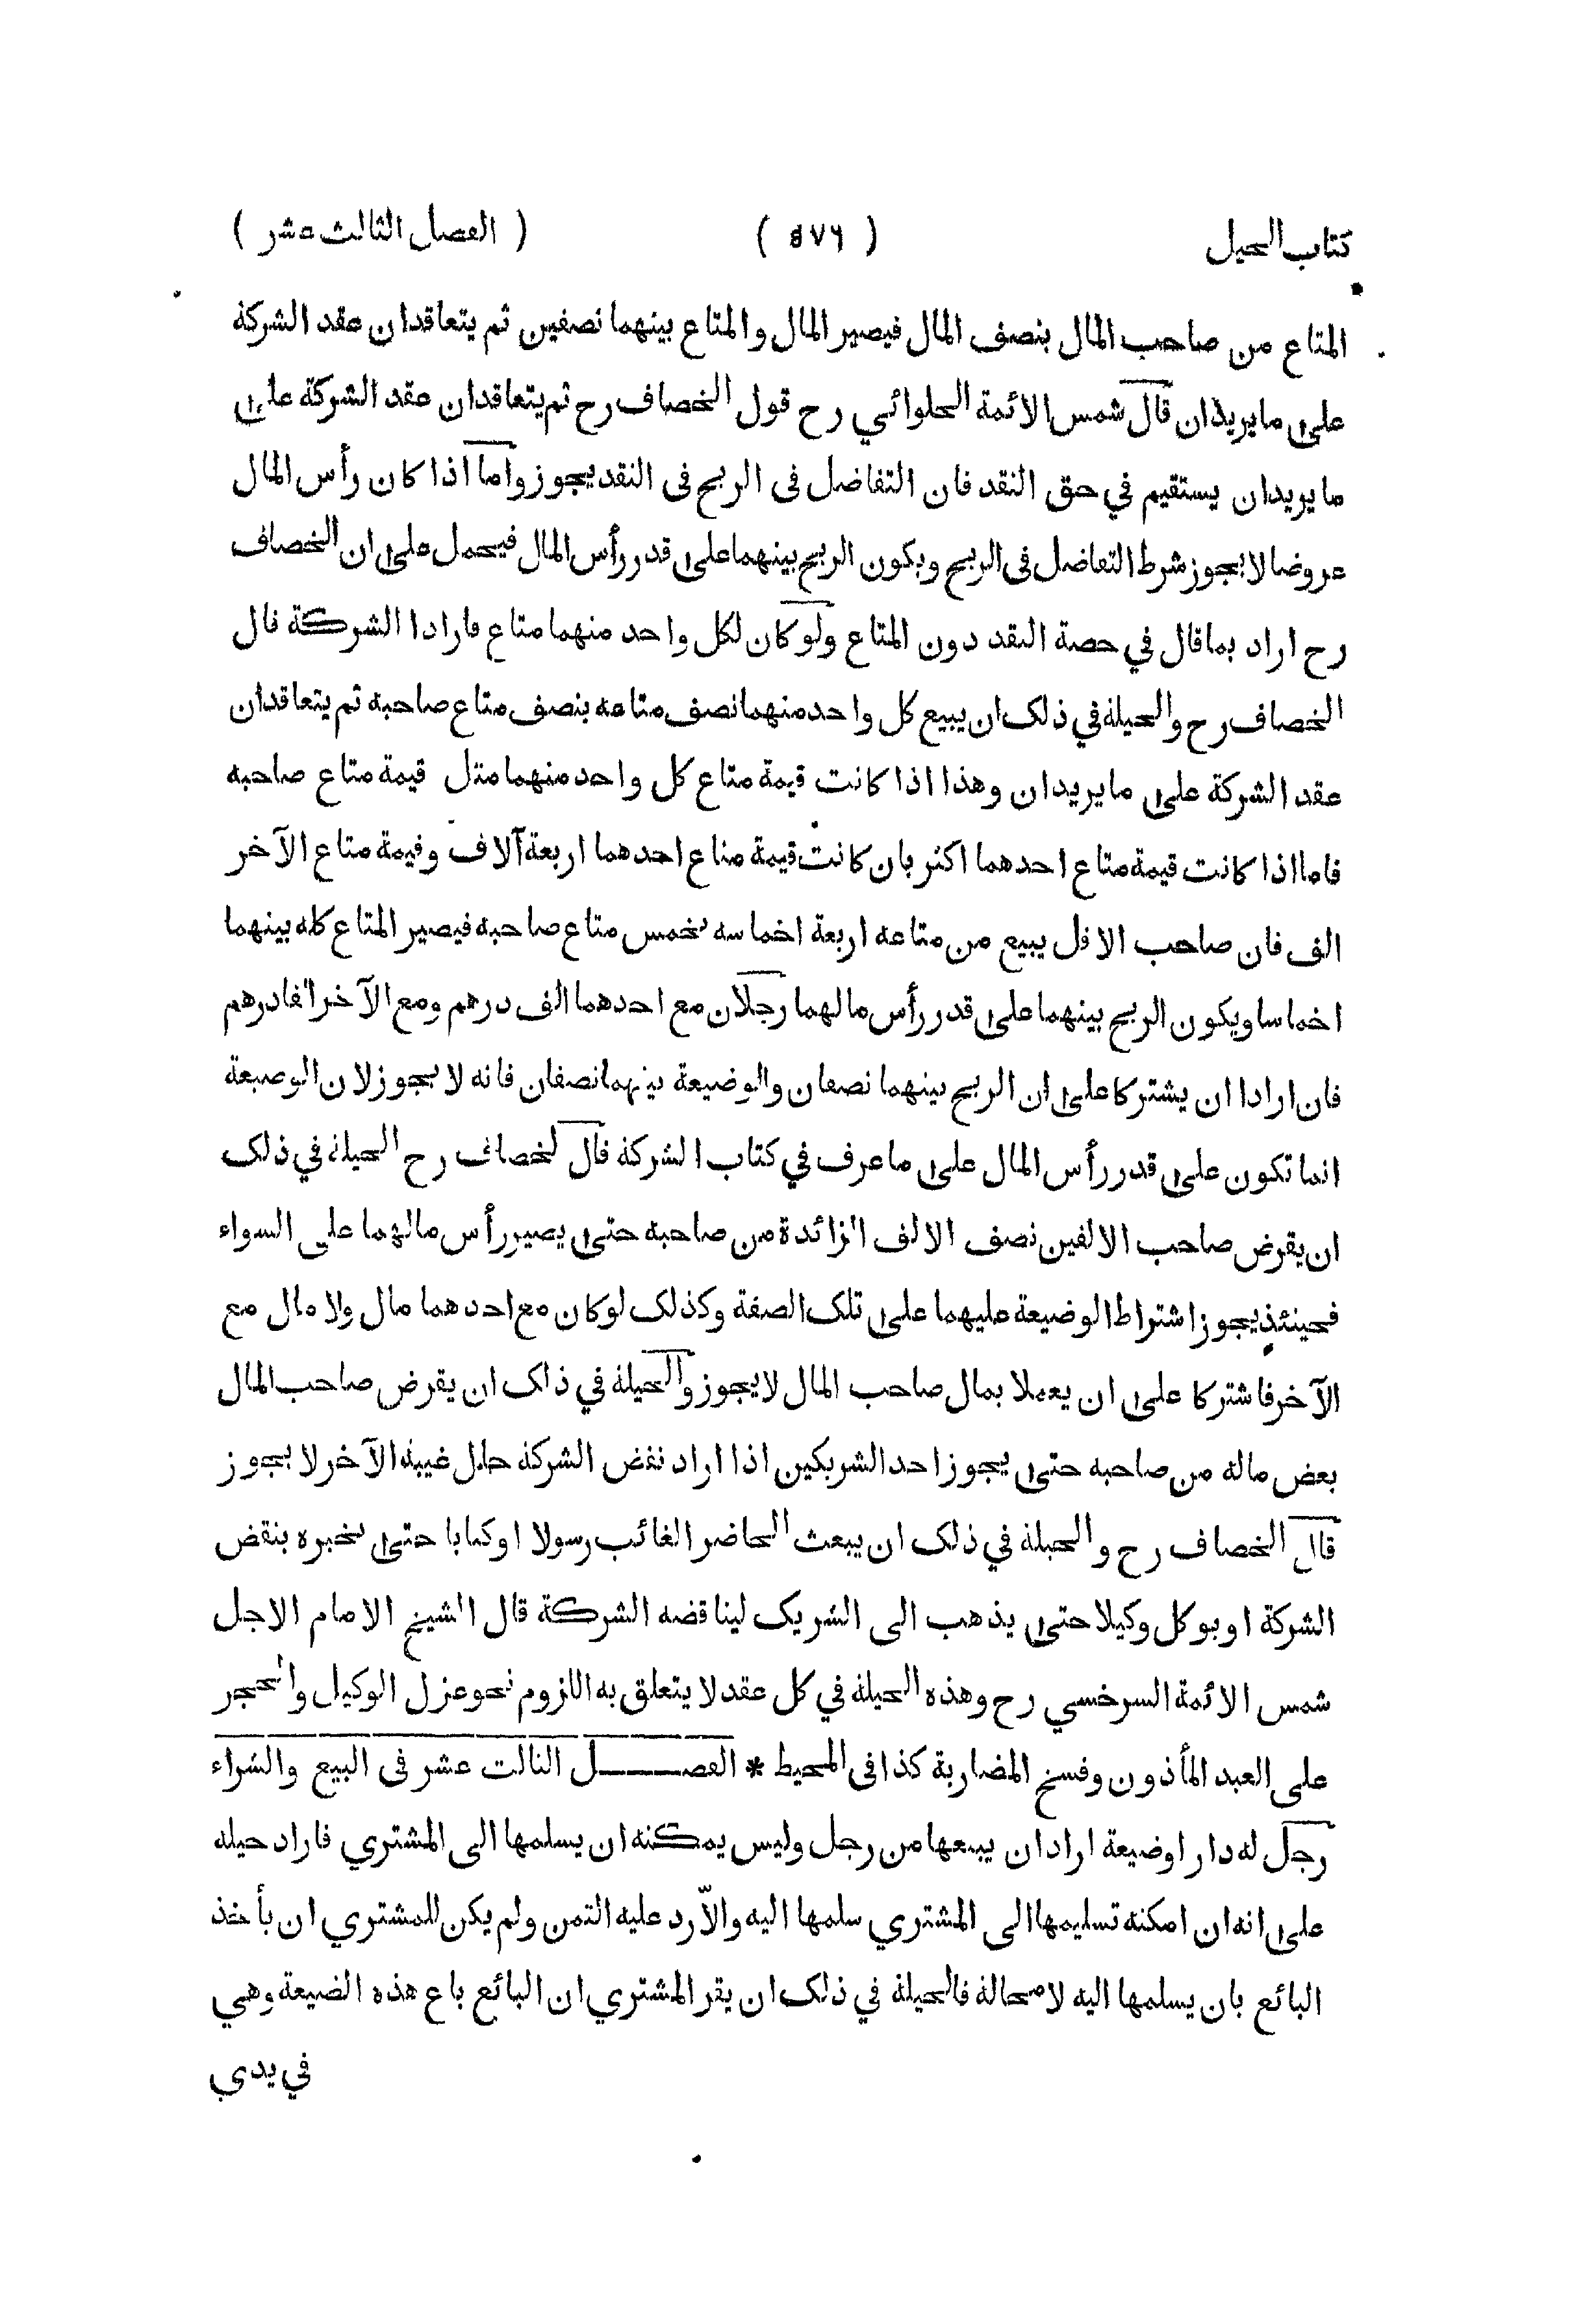 كتاب الحيل ( ٥٧٦ ) ( الفصل الثالث عشر )
المتاع من صاحب المال بنصف المال فيصير المال والمتاع بينهما نصفين ثم يتعاقدان عقد الشركة
على ما يريدان قال شمس الائمة الحلوائي رح قول الخصاف رح ثم يتعاقدان عقد الشركة على
ما يريدان يستقيم في حق النقد فان التفاضل فى الربح فى النقد يجوز واما اذا كان رأس المال
عروضا لا يجوز شرط التفاضل فى الربح ويكون الربح بينهما على قدر رأس المال فيحمل على ان الخصاف
رح اراد بما قال في حصة النقد دون المتاع ولو كان لكل واحد منهما متاع فارادا الشركة قال
الخصاف رح والحيلة في ذلك ان يبيع كل واحد منهما نصف متاعه بنصف متاع صاحبه ثم يتعاقدان
عقد الشركة على ما يريدان وهذا اذا كانت قيمة متاع كل واحد منهما مثل قيمة متاع صاحبه
فاما اذا كانت قيمة متاع احدهما اكثر بان كانت قيمة متاع احدهما اربعة آلاف وقيمة متاع الآخر
الف فان صاحب الاقل يبيع من متاعه اربعة اخماسه بخمس متاع صاحبه فيصير المتاع كله بينهما
اخماسا ويكون الربح بينهما على قدر رأس مالهما رجلان مع احدهما الف درهم ومع الآخر الفا درهم
فان ارادا ان يشتركا على ان الربح بينهما نصفان والوضيعة بينهما نصفان فانه لا يجوز لان الوضيعة
انما تكون على قدر رأس المال على ما عرف في كتاب الشركة قال الخصاف رح الحيلة في ذلك
ان يقرض صاحب الالفين نصف الالف الزائدة من صاحبه حتى يصير رأس مالهما على السواء
فحينئذ يجوز اشتراط الوضيعة عليهما على تلك الصفة وكذلك لو كان مع احدهما مال ولا مال مع
الآخر فاشتركا على ان يعملا بمال صاحب المال لا يجوز والحيلة في ذلك ان يقرض صاحب المال
بعض ماله من صاحبه حتى يجوز احد الشريكين اذا اراد نقض الشركة حال غيبة الآخر لا يجوز
قال الخصاف رح والحيلة في ذلك ان يبعث الحاضر الغائب رسولا او كتابا حتى يخبره بنقض
الشركة او يوكل وكيلا حتى يذهب الى الشريك ليناقضه الشركة قال الشيخ الامام الاجل
شمس الائمة السرخسي رح وهذه الحيلة في كل عقد لا يتعلق به اللزوم نحو عزل الوكيل والحجر
على العبد المأذون وفسخ المضاربة كذا فى المحيط * الفصــل الثالث عشر فى البيع والشراء
رجل له دار او ضيعة اراد ان يبيعها من رجل وليس يمكنه ان يسلمها الى المشتري فاراد حيلة
على انه ان امكنه تسليمها الى المشتري سلمها اليه والاّ رد عليه الثمن ولم يكن للمشتري ان يأخذ
البائع بان يسلمها اليه لا محالة فالحيلة في ذلك ان يقر المشتري ان البائع باع هذه الضيعة وهي
في يدي